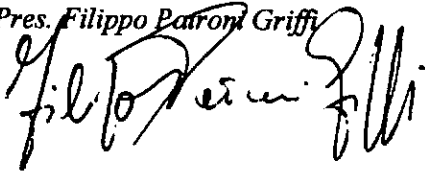 Pres. Filippo Patroni Griffi
Filippo Patroni Griffi